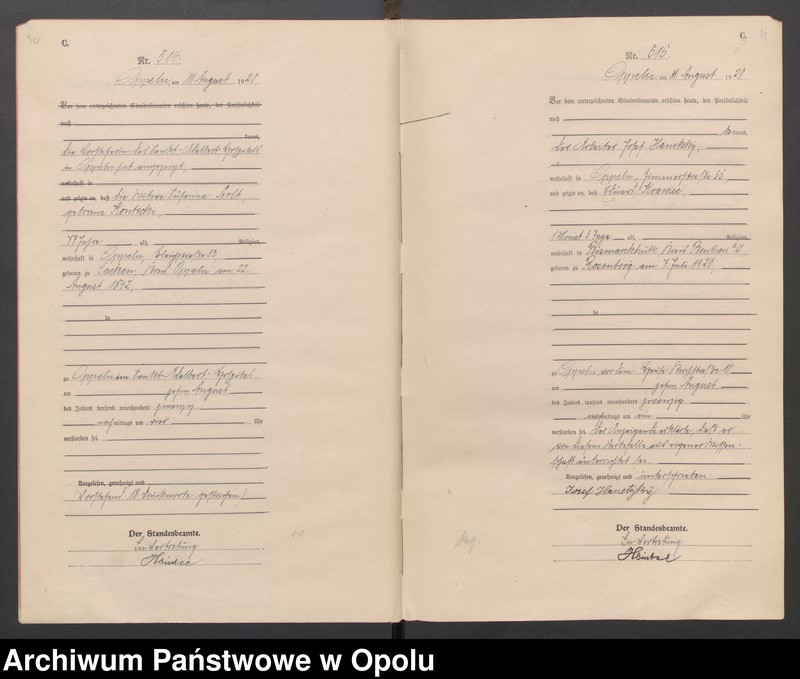 C.
Nr. 514.
Oppeln, am 11 August 1920
Vor dem unterzeichneten Standesbeamten erschien heute, der Persönlichkeit
nach
kannt,
die Vorsteherin des Sankt-Adalbert-Hospitals
in Oppeln hat angezeigt,
wohnhaft in
und zeigte an, daß die Witwe Susanna
geborene
77 Jahre alt, Religion,
wohnhaft in Oppeln, 33,
geboren zu Sacken, Kreis Oppeln am 22.
August 1842,
de
zu Oppeln im Sankt-Adalbert-Hospital
am zehn August
des Jahres tausend neunhundert zwanzig
nachmittags um vier Uhr
verstorben sei.
Vorgelesen, genehmigt und
(Vorstehend Druckworte gestrichen)
Der Standesbeamte.
In Vertretung
C.
Nr. 515.
Oppeln, am 11 August 1920
Vor dem unterzeichneten Standesbeamten erschien heute, der Persönlichkeit
nach
be kannt,
der Arbeiter Josef Hanetzky,
wohnhaft in Oppeln, 55,
und zeigte an, daß Eduard
1 Monat 3 Tage alt, Religion,
wohnhaft in Bismarckhütte Kreis Beuthen O/S,
geboren zu Rosenberg am 7 Juli 1920,
de
zu Oppeln vor dem Hause
am zehn August
des Jahres tausend neunhundert zwanzig
mittags um ein Uhr
verstorben sei. Der Anzeigende erklärte, daß er
von diesem Sterbefalle aus eigener Wissen-
schaft unterrichtet sei
Vorgelesen, genehmigt und unterschrieben
Josef Hanetzky
Der Standesbeamte.
In Vertretung
Archiwum Państwowe w Opolu